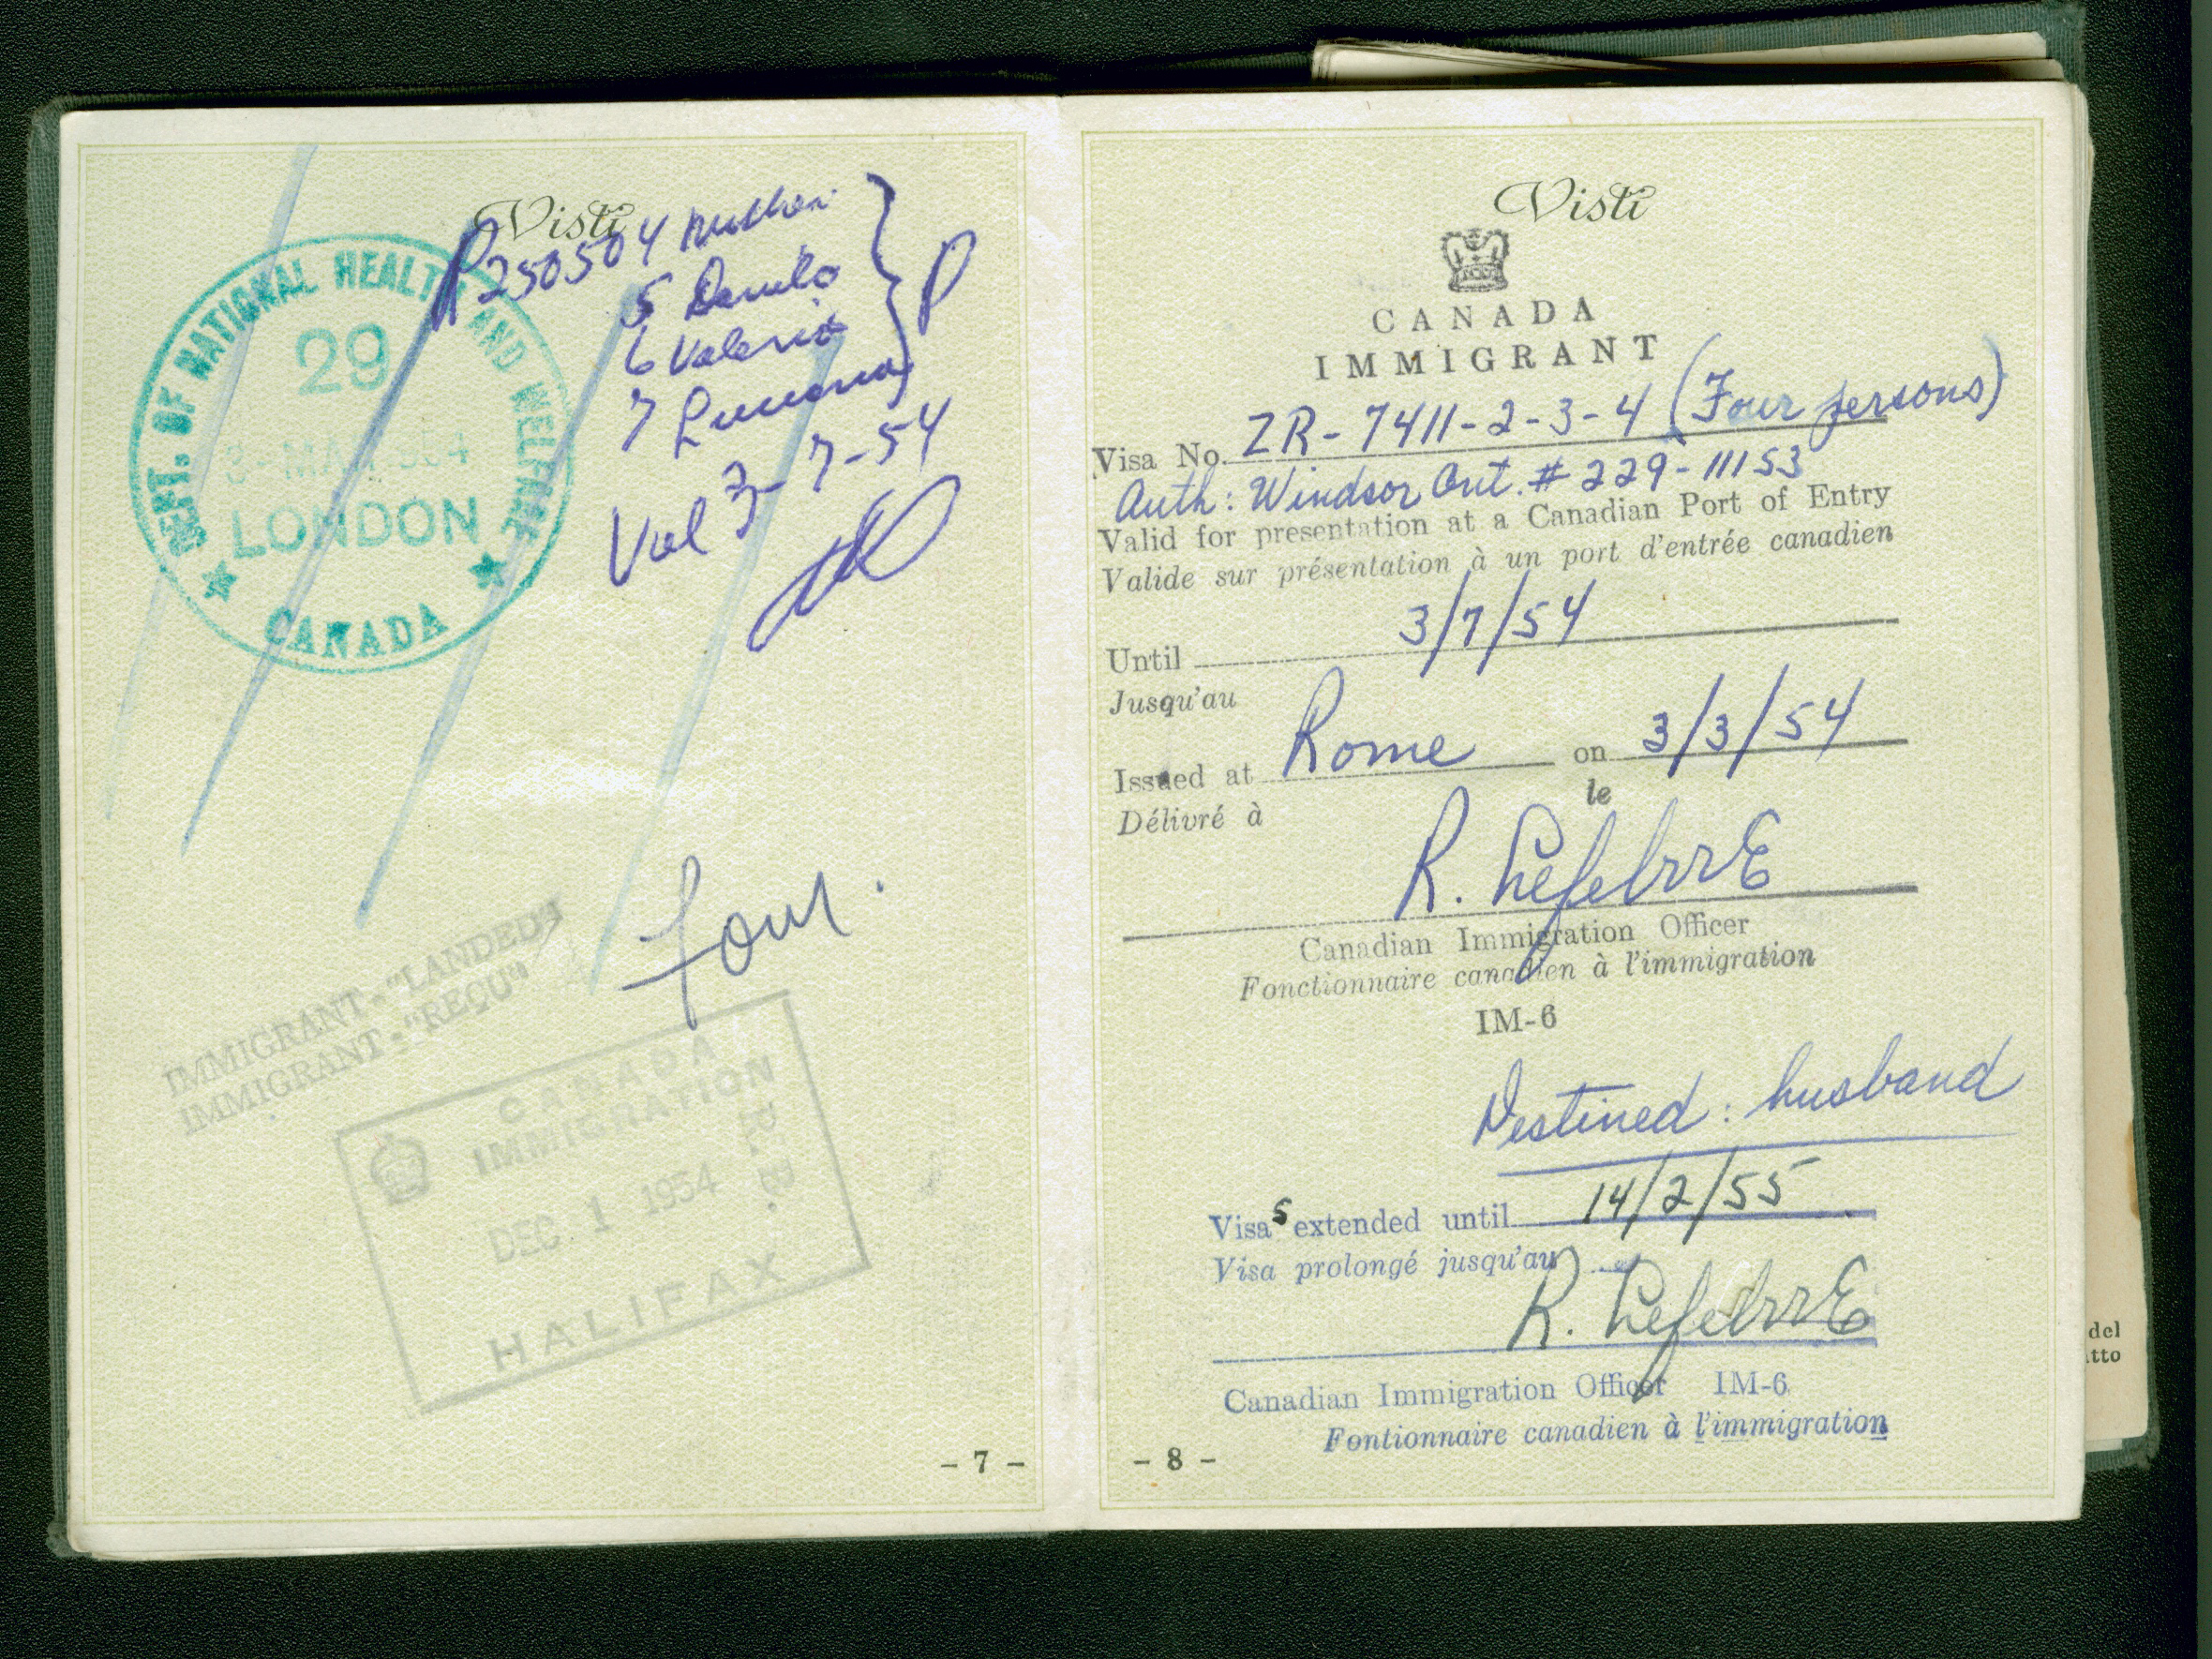 Visti
P 250504 Mother
5 Danilo
6 Valerio
7 Luciana
P
Val 3-7-54
DEPT. OF NATIONAL HEALTH AND WELFARE
29
3-MAR 1954
LONDON
CANADA
four.
IMMIGRANT - "LANDED"
IMMIGRANT - "REÇU"
CANADA
IMMIGRATION
R.B.
DEC 1 1954
HALIFAX
- 7 -
Visti
CANADA
IMMIGRANT
Visa No. ZR-7411-2-3-4 (Four persons)
Auth: Windsor Ont. # 229-11153
Valid for presentation at a Canadian Port of Entry
Valide sur présentation à un port d'entrée canadien
Until 3/7/54
Jusqu'au
Issued at Rome on 3/3/54
Délivré à le
R. Lefebvre
Canadian Immigration Officer
Fonctionnaire canadien à l'immigration
IM-6
Destined: husband
Visas extended until 14/2/55
Visa prolongé jusqu'au
R. Lefebvre
Canadian Immigration Officer IM-6
Fontionnaire canadien à l'immigration
- 8 -
del
tto